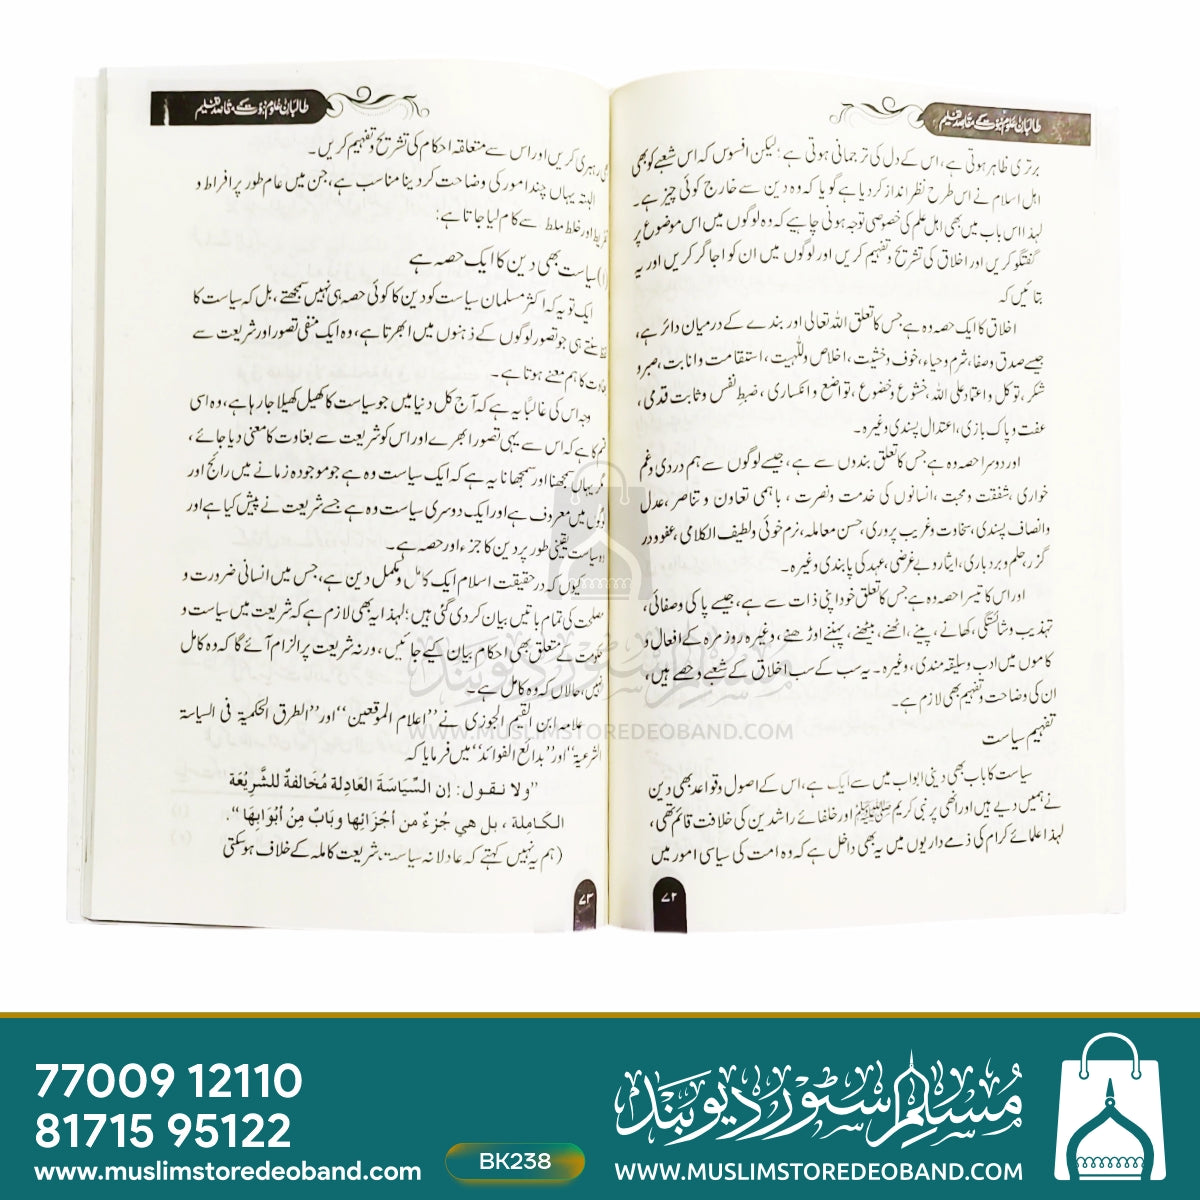 طالبان علوم نبوت کے مقاصد تعلیم
برتری ظاہر ہوتی ہے، اس کے دل کی ترجمانی ہوتی ہے؛ لیکن افسوس کہ اس شعبے کو بھی
اہل اسلام نے اس طرح نظر انداز کر دیا ہے گویا کہ وہ دین سے خارج کوئی چیز ہے۔
لہٰذا اس باب میں بھی اہل علم کی خصوصی توجہ ہونی چاہیے کہ وہ لوگوں میں اس موضوع پر
گفتگو کریں اور اخلاق کی تشریح و تفہیم کریں اور لوگوں میں ان کو اجاگر کریں اور یہ
بتائیں کہ
اخلاق کا ایک حصہ وہ ہے جس کا تعلق اللہ تعالیٰ اور بندے کے درمیان دائر ہے،
جیسے صدق و صفا، شرم و حیاء، خوف و خشیت، اخلاص وللّٰہیت، استقامت و انابت، صبر و
شکر، توکل و اعتماد علی اللہ، خشوع و خضوع، تواضع و انکساری، ضبطِ نفس و ثابت قدمی،
عفت و پاک بازی، اعتدال پسندی وغیرہ۔
اور دوسرا حصہ وہ ہے جس کا تعلق بندوں سے ہے، جیسے لوگوں سے ہم دردی و غم
خواری، شفقت و محبت، انسانوں کی خدمت و نصرت، باہمی تعاون و تناصر، عدل
و انصاف پسندی، سخاوت و غریب پروری، حسن معاملہ، نرم خوئی و لطیف الکلامی، عفو و در
گزر، حلم و بردباری، ایثار و بے غرضی، عہد کی پابندی وغیرہ۔
اور اس کا تیسرا حصہ وہ ہے جس کا تعلق خود اپنی ذات سے ہے، جیسے پاکی و صفائی،
تہذیب و شائستگی، کھانے، پینے، اٹھنے، بیٹھنے، پہننے اوڑھنے، وغیرہ روز مرہ کے افعال و
کاموں میں ادب و سلیقہ مندی، وغیرہ۔ یہ سب کے سب اخلاق کے شعبے و حصے ہیں،
ان کی وضاحت و تفہیم بھی لازم ہے۔
تفہیم سیاست
سیاست کا باب بھی دینی ابواب میں سے ایک ہے، اس کے اصول و قواعد بھی دین
نے ہمیں دیے ہیں اور انھی پر نبی کریم ﷺ اور خلفائے راشدین کی خلافت قائم تھی،
لہٰذا علمائے کرام کی ذمے داریوں میں یہ بھی داخل ہے کہ وہ امت کی سیاسی امور میں
۷۲
طالبان علوم نبوت کے مقاصد تعلیم
بھی رہبری کریں اور اس سے متعلقہ احکام کی تشریح و تفہیم کریں۔
البتہ یہاں چند امور کی وضاحت کر دینا مناسب ہے، جن میں عام طور پر افراط و
تفریط اور خلط ملط سے کام لیا جاتا ہے:
(۱) سیاست بھی دین کا ایک حصہ ہے
ایک تو یہ کہ اکثر مسلمان سیاست کو دین کا کوئی حصہ ہی نہیں سمجھتے، بل کہ سیاست کا
لفظ سنتے ہی جو تصور لوگوں کے ذہنوں میں ابھرتا ہے، وہ ایک منفی تصور اور شریعت سے
بغاوت کا ہم معنے ہوتا ہے۔
وجہ اس کی غالباً یہ ہے کہ آج کل دنیا میں جو سیاست کا کھیل کھیلا جا رہا ہے، وہ اسی
قسم کا ہے کہ اس سے یہی تصور ابھرے اور اس کو شریعت سے بغاوت کا معنی دیا جائے،
مگر یہاں سمجھنا اور سمجھانا یہ ہے کہ ایک سیاست وہ ہے جو موجودہ زمانے میں رائج اور
لوگوں میں معروف ہے اور ایک دوسری سیاست وہ ہے جسے شریعت نے پیش کیا ہے اور
وہ سیاست یقینی طور پر دین کا جزء اور حصہ ہے۔
کیوں کہ درحقیقت اسلام ایک کامل و مکمل دین ہے، جس میں انسانی ضرورت و
مصلحت کی تمام باتیں بیان کر دی گئی ہیں؛ لہٰذا یہ بھی لازم ہے کہ شریعت میں سیاست و
حکومت کے متعلق بھی احکام بیان کیے جائیں، ورنہ شریعت پر الزام آئے گا کہ وہ کامل
نہیں، حالاں کہ وہ کامل ہے۔
علامہ ابن القیم الجوزی نے "اعلام الموقعین" اور "الطرق الحکمیة فی السیاسة
الشرعیة" اور "بدائع الفوائد" میں فرمایا کہ
"ولا نقول: إن السِّيَاسَةَ العَادِلة مُخَالفةٌ للشَّرِيْعَة
الكَامِلة، بل هي جُزءٌ من أجْزَائِها وبَابٌ مِنْ أبْوَابِهَا".
(ہم یہ نہیں کہتے کہ عادلانہ سیاست، شریعت کاملہ کے خلاف ہو سکتی
۷۳
مسلم سٹور دیوبند
WWW.MUSLIMSTOREDEOBAND.COM
77009 12110
81715 95122
www.muslimstoredeoband.com
BK238
مسلم سٹور دیوبند
WWW.MUSLIMSTOREDEOBAND.COM